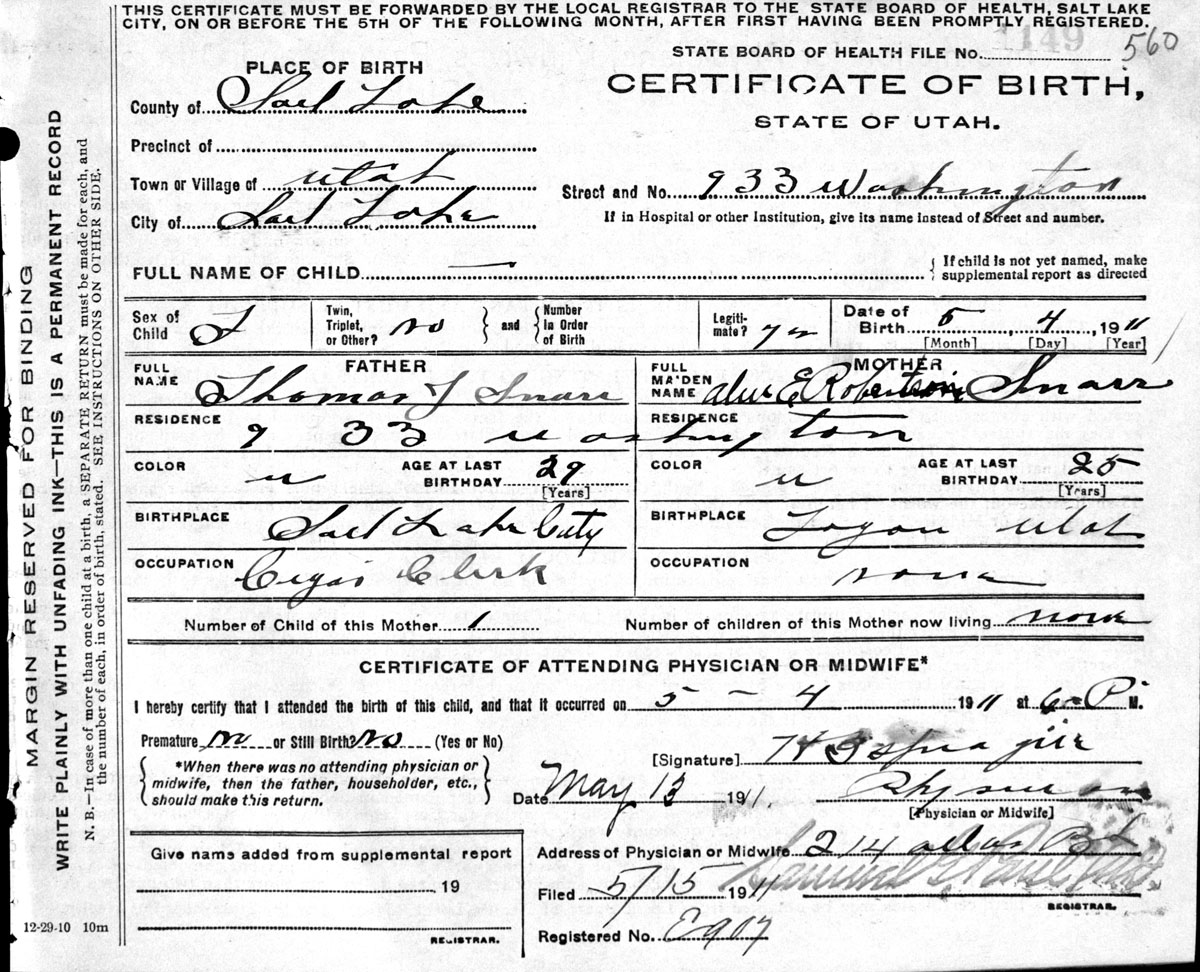 THIS CERTIFICATE MUST BE FORWARDED BY THE LOCAL REGISTRAR TO THE STATE BOARD OF HEALTH, SALT LAKE
CITY, ON OR BEFORE THE 5TH OF THE FOLLOWING MONTH, AFTER FIRST HAVING BEEN PROMPTLY REGISTERED.
STATE BOARD OF HEALTH FILE No. 1149 560
PLACE OF BIRTH
CERTIFICATE OF BIRTH,
STATE OF UTAH.
County of Salt Lake
Precinct of
Town or Village of Utah
Street and No. 933 Washington
City of Salt Lake
If in Hospital or other Institution, give its name instead of Street and number.
FULL NAME OF CHILD — { If child is not yet named, make
supplemental report as directed
Sex of Child F
Twin, Triplet, or Other? no
and { Number in Order of Birth
Legitimate? yes
Date of Birth 5, 4, 1911
[Month] [Day] [Year]
FATHER
FULL NAME Thomas J Snarr
MOTHER
FULL MAIDEN NAME E Robertson Snarr
RESIDENCE
RESIDENCE
933 Washington
COLOR W
AGE AT LAST BIRTHDAY 29
[Years]
COLOR W
AGE AT LAST BIRTHDAY 25
[Years]
BIRTHPLACE Salt Lake City
BIRTHPLACE Logan Utah
OCCUPATION Cigar Clerk
OCCUPATION none
Number of Child of this Mother 1
Number of children of this Mother now living none
CERTIFICATE OF ATTENDING PHYSICIAN OR MIDWIFE*
I hereby certify that I attended the birth of this child, and that it occurred on 5 - 4 1911 at 6 P M.
Premature no or Still Birth? No (Yes or No)
*When there was no attending physician or
midwife, then the father, householder, etc.,
should make this return.
[Signature]
Date May 13 1911
Physician
[Physician or Midwife]
Address of Physician or Midwife 214
Filed 5/15 1911
REGISTRAR.
Registered No. E907
Give name added from supplemental report
19
REGISTRAR.
12-29-10 10m
MARGIN RESERVED FOR BINDING
WRITE PLAINLY WITH UNFADING INK—THIS IS A PERMANENT RECORD
N. B.—In case of more than one child at a birth, a SEPARATE RETURN must be made for each, and
the number of each, in order of birth, stated. SEE INSTRUCTIONS ON OTHER SIDE.